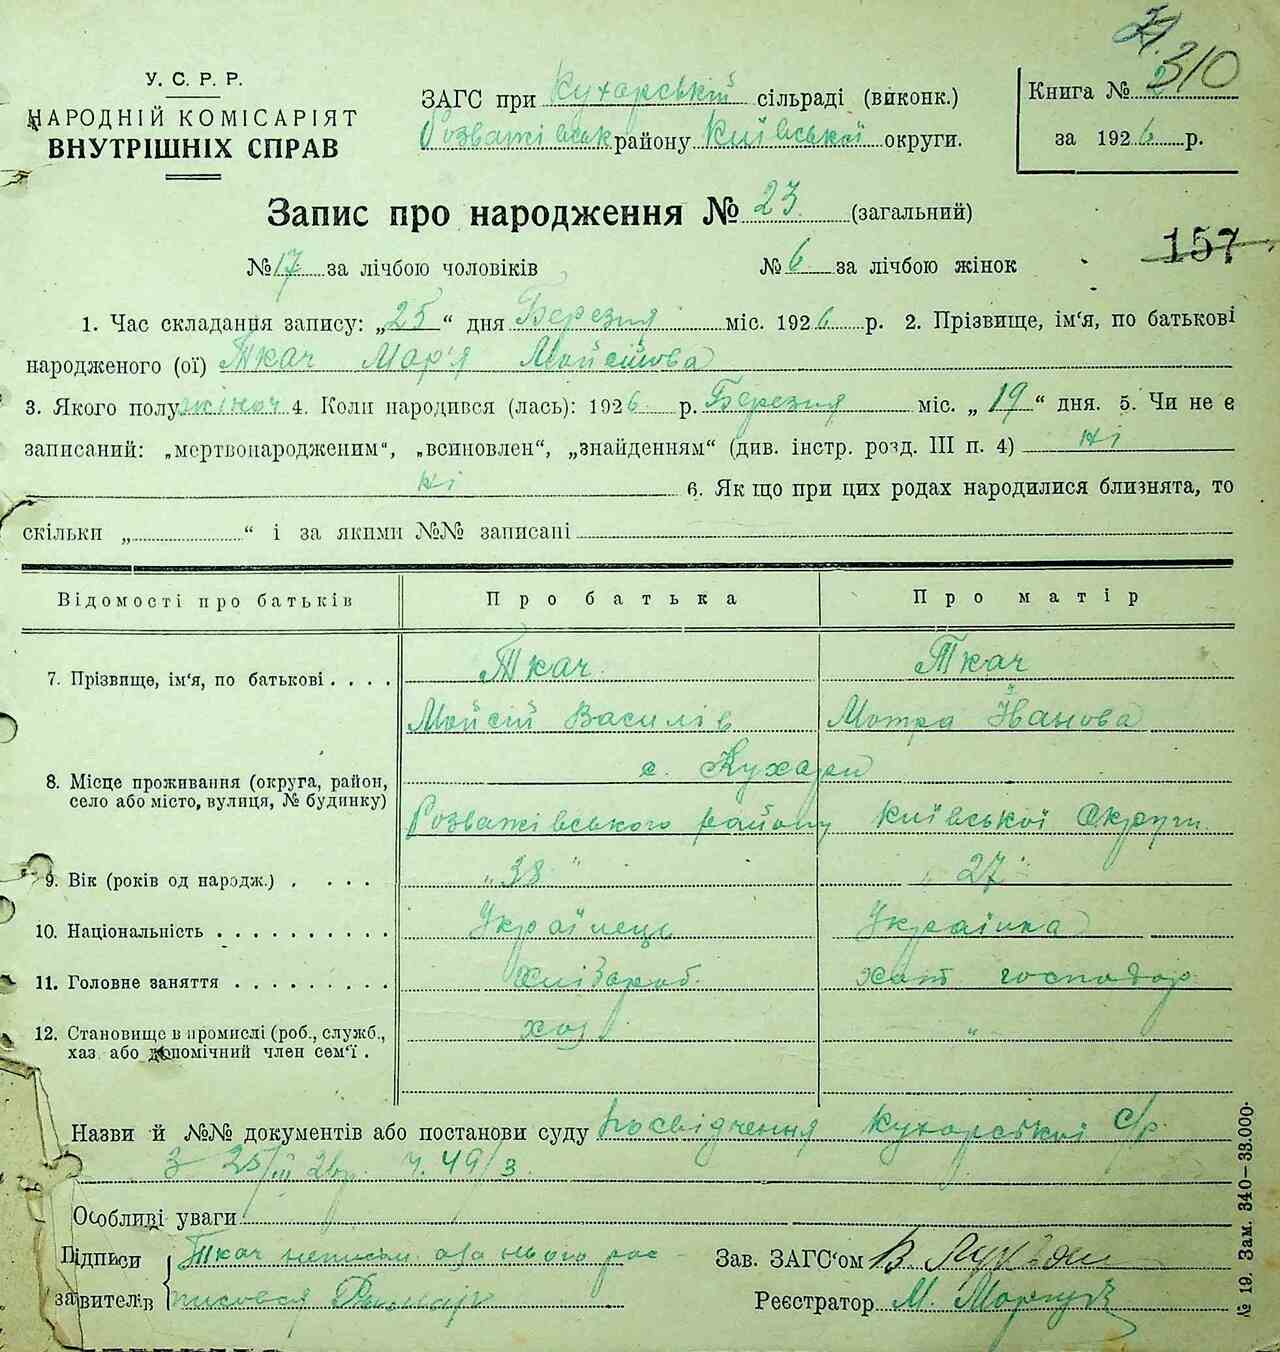 310
У. С. Р. Р.
НАРОДНІЙ КОМІСАРІЯТ
ВНУТРІШНІХ СПРАВ
ЗАГС при Кухарській сільраді (виконк.)
Розважівськ району Київської округи.
Книга № 2
за 1926 р.
Запис про народження № 23 (загальний)
157
№ 17 за лічбою чоловіків № 6 за лічбою жінок
1. Час складання запису: „25“ дня Березня міс. 1926 р. 2. Прізвище, ім'я, по батькові
народженого (ої) Ткач Мар'я Мойсійова
3. Якого полу жіноч 4. Коли народився (лась): 1926 р. Березня міс. „19“ дня. 5. Чи не є
записаний: „мертвонародженим“, „всиновлен“, „знайденням“ (див. інстр. розд. III п. 4) ні
ні 6. Як що при цих родах народилися близнята, то
скільки „ “ і за якими №№ записані
Відомості про батьків Про батька Про матір
7. Прізвище, ім'я, по батькові . . . . Ткач Ткач
Мойсій Василів Мотра Іванова
8. Місце проживання (округа, район,
село або місто, вулиця, № будинку)
с. Кухари
Розважівського району Київської Округи
9. Вік (років од народж.) . . . . „38“ „27“
10. Національність . . . . . . . . . . Українець Українка
11. Головне заняття . . . . . . . . . Хлібороб. хат господар
12. Становище в промислі (роб., служб.,
хаз або допомічний член сем'ї .
хоз „
Назви й №№ документів або постанови суду Посвідчення Кухарської с/р.
з 25/III 26р. ч. 49/3
Особливі уваги
Підписи Ткач неписьм. а за нього рос
завителів писовся
Зав. ЗАГС'ом В.
Реєстратор М.
№ 19. Зам. 340—38.000.